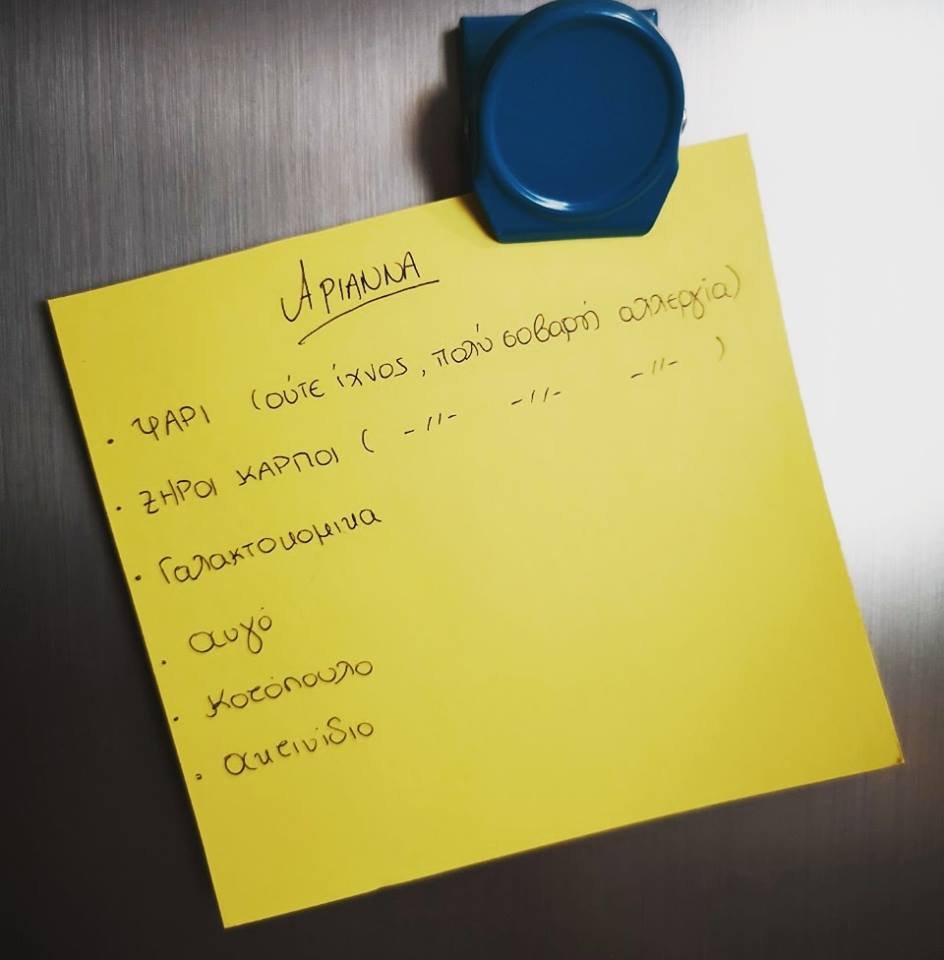 ΑΡΙΑΝΝΑ
• ΨΑΡΙ (ούτε ίχνος, πολύ σοβαρή αλλεργία)
• ΞΗΡΟΙ ΚΑΡΠΟΙ ( -//- -//- -//- )
• Γαλακτοκομικα
• αυγό
• κοτόπουλο
• ακτινίδιο